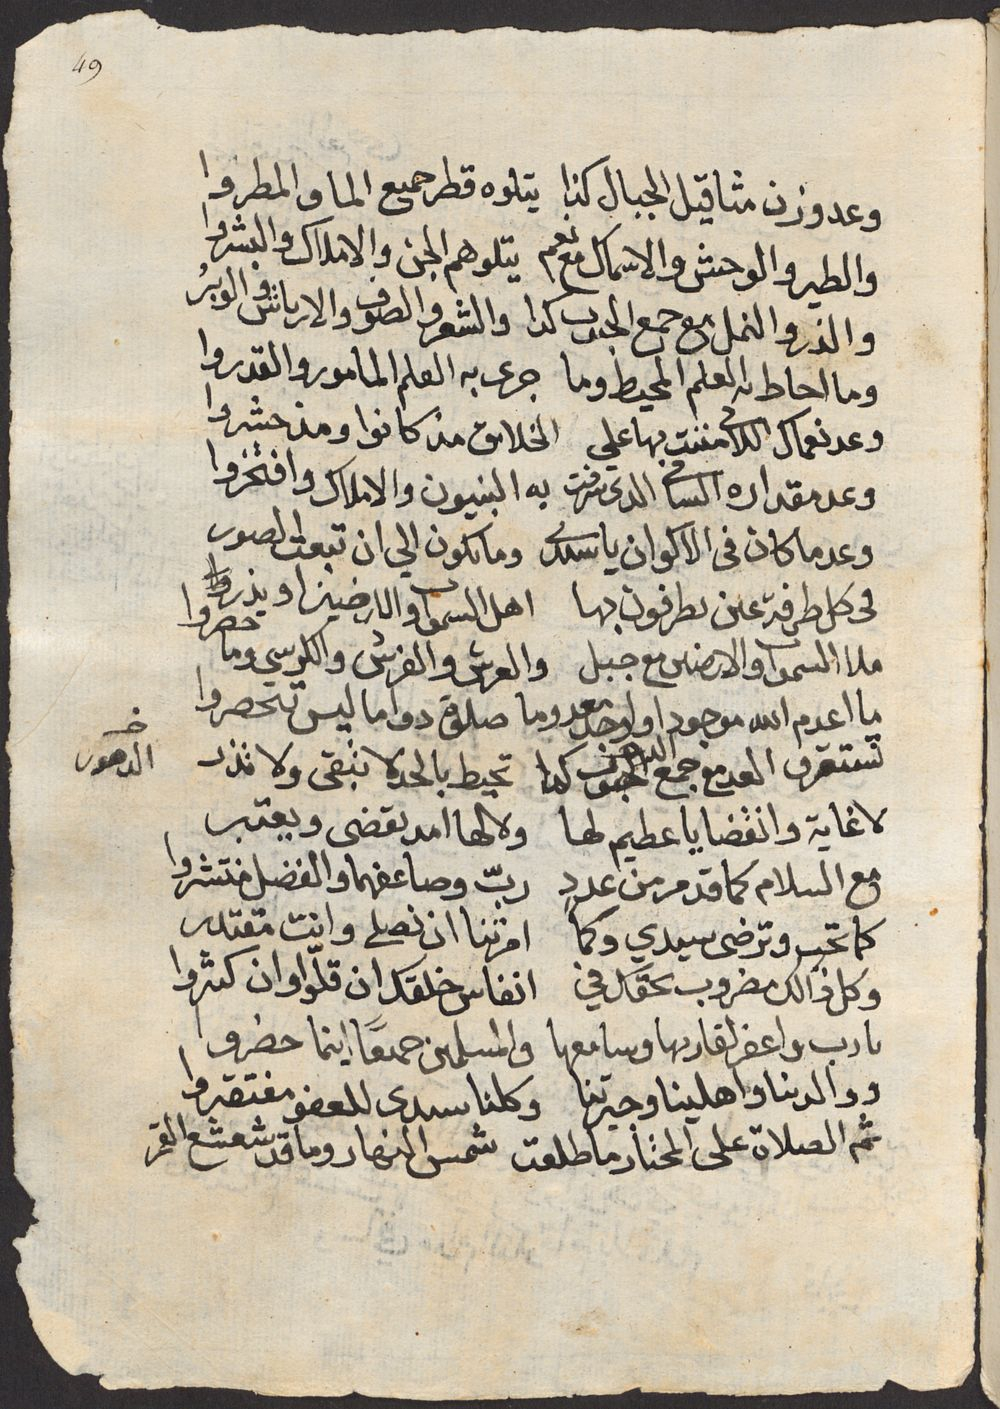 49
وعد وزن مثاقيل الجبال كذا يتلوه قطر جميع الما والمطروا
والطير والوحش والاسماك مع نعم يتلوهم الجن والاملاك والبشروا
والذر والنمل مع جمع الحبوب كذا والشعر والصوف والارياش والوبرُ
وما احاط به العلم المحيط وما جرى به القلم المامور والقدروا
وعد نعماك اللاتي مننت بها على الخلايق مذ كانوا ومذ حشروا
وعد مقداره السامي الذي شرفت به النبيون والاملاك وافتخروا
وعد ما كان في الاكوان يا سندي وما يكون الي ان تبعث الصور
في كل طرفة عين يطرفون بها اهل السموات والارضين او يذروا
ملا السموات والارضين مع جبل والعرش والفرش والكرسي وما حصروا
ما اعدم الله موجودا واوجد معدوما صلوة دواما ليس تنحصروا
تستغرق العد مع جمع الدهور كذا تحيط بالحد لا تبقى ولا تذر
خـ
الدهور
لا غاية وانقضا يا عظيم لها ولا لها امد يقضى ويعتبر
مع السلام كما قد مر من عددٍ ربّ وضاعفهما والفضل منتشروا
كما تحب وترضى سيدي وكما امرتنا ان نصلي وانت مقتدر
وكل ذالك مضروب بحقك في انفاس خلقك ان قلّوا وان كثروا
يا رب واغفر لقاريها وسامعها والمسلمين جميعًا اينما حضروا
ووالدينا واهلينا وجيرتنا وكلنا سيدي للعفو مفتقروا
ثم الصلاة على المختار ما طلعت شمس النهار وما قد شعشع القمر